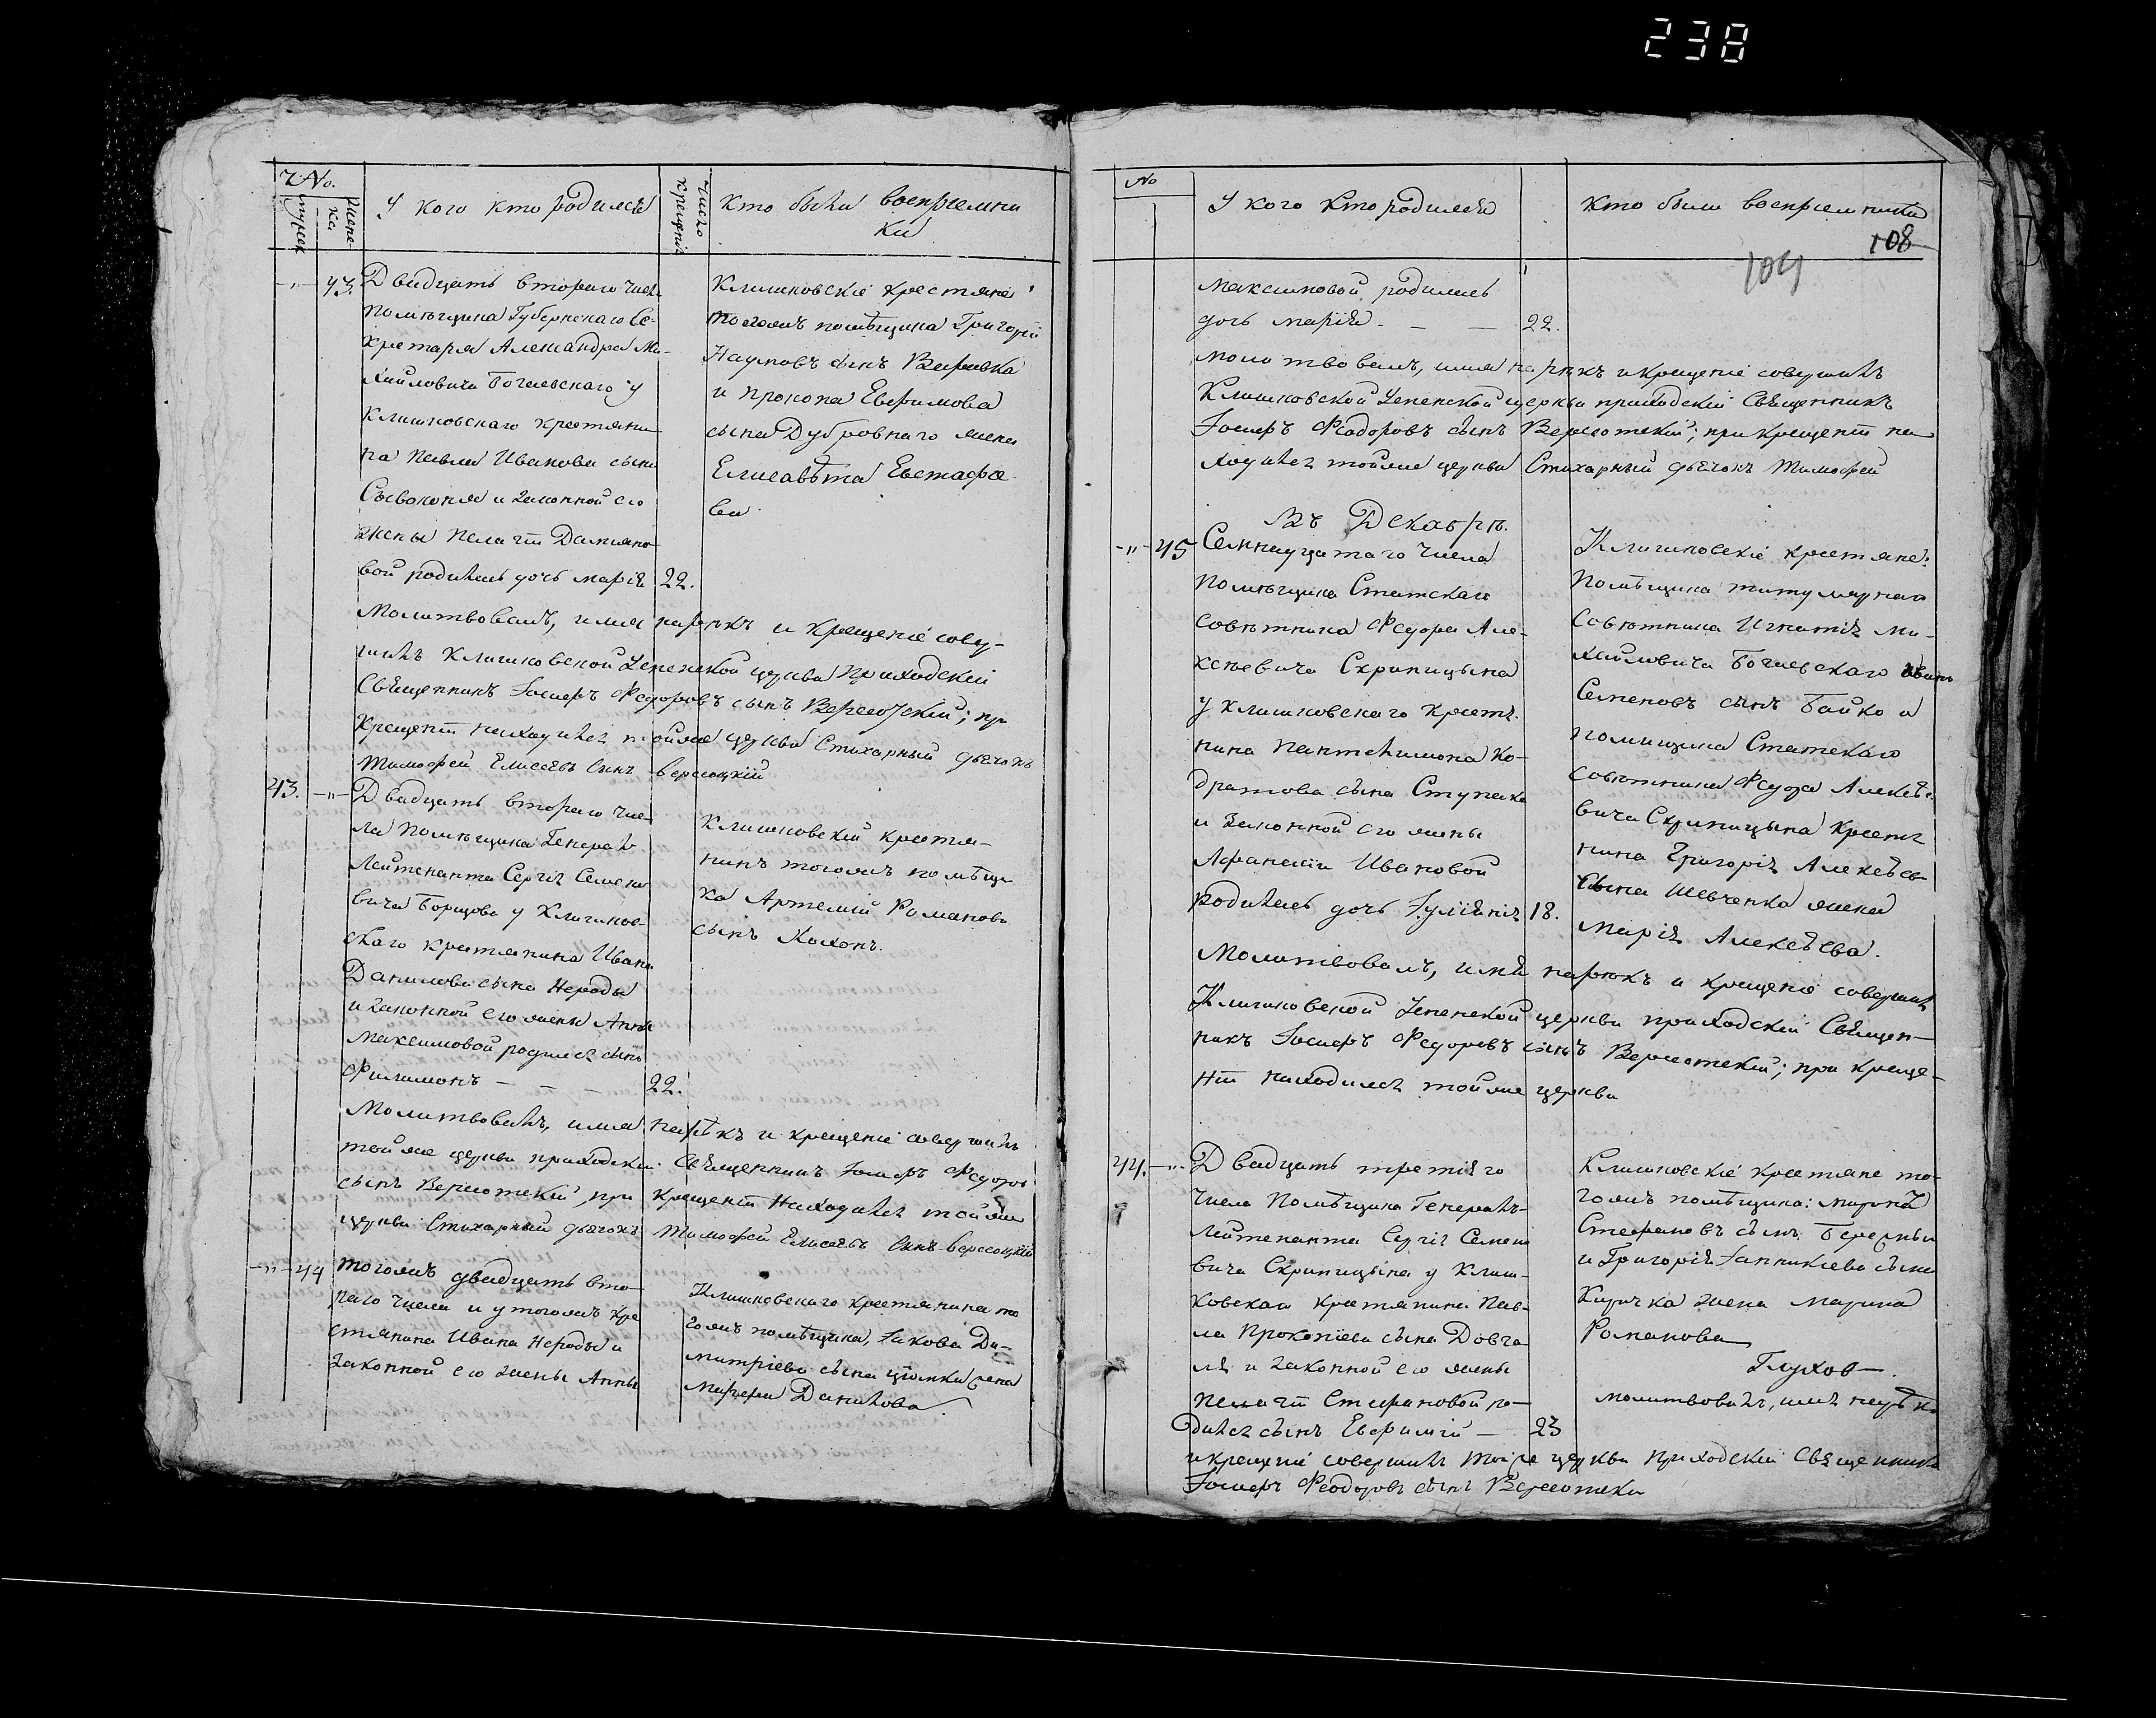 238
Ч. No.
мужеск
женска
У кого кто родился
число крещенія
Кто были восприемни
ки
-"- 43. Двадцать втораго числ
помѣщика Губернскаго Се-
кретаря Александра Ми-
хайловича Богаевскаго у
Клишковскаго крестяни
на Павла Иванова сына
и законной его
жены Пелагіи Дамяно
вой родилась дочь марія 22.
Клишковскіе крестяне
тогожъ помѣщика Григорій
Наумовъ сынъ
и прокопа Евфимова
сына Дубровнаго жена
Елисавѣта Евстафіе
ва
Молитвовалъ, имя нарѣкъ и крещеніе совер-
шилъ Клишковской Успенской церкви Приходскій
Священникъ Іосифъ Федоровъ сынъ Вересотскій; при
крещеніи находился тойже церкви Стихарный дьячокъ
Тимофей Елисеевъ сынъ вересоцкій
43. -"- Двадцать втораго чис
ла помѣщика Генералъ
Лейтенанта Сергія Семено
вича Борщова у Клишков-
скаго крестянина Ивана
Данилова сына Нероды
и законной его жены Анны
Максимовой родился сынъ
Филимонъ — — — 22.
Клишковскій крестя-
нинъ тогожъ помѣщи
ка Артемій Романовъ
сынъ
Молитвовалъ, имя нарѣкъ и крещеніе совершилъ
тойже церкви приходскій Священникъ Іосифъ Федоровъ
сынъ Вересотскій, при крещеніи Находился тойже
церкви Стихарный дьячокъ Тимофей Елисеевъ сынъ вересоцкій
-"- 44 тогожъ двадцать вто-
раго числа и у тогожъ кре
стянина Ивана Нероды и
законной его жены Анны
Клишковскаго крестянина то
гожъ помѣщика, Іакова Ди-
митріева сына жена
Марфа Данилова
No
У кого кто родился
Кто были восприемники
108
104
Максимовой родилась
дочь марія — — 22.
молитвовалъ, имя нарѣкъ и крещеніе совершилъ
Клишковской Успенской церкви приходскій Священникъ
Іосифъ Феодоровъ сынъ Вересотскій; при крещеніи на
ходился тойже церкви Стихарный дьячокъ Тимофей
Въ Декабрѣ.
-"- 45 Семнадцатаго числа
Помѣщика Статскаго
Совѣтника Федора Але-
ксѣевича Скрипицына
у клишковскаго крестя
нина Пантелимона Ко-
дратова сына Ступака
и законной его жены
Афанасіи Ивановой
родилась дочь Іуліянія 18.
Клишковскіе крестяне:
Помѣщика титулярнаго
Совѣтника Игнатія Ми-
хайловича Богаевскаго
Семеновъ сынъ Бойко и
помищика Статскаго
Совѣтника Федора Алексѣе
вича Скрипицына Крестя
нина Григорія Алексѣева
сына Шевченка жена
Марія Алексѣева.
Молитвовалъ, имя нарѣкъ и крещеніе совершилъ
Клишковской Успенской церкви приходскій Священ-
никъ Іосифъ Федоровъ сынъ Вересотскій; при креще-
ніи находился тойже церкви
44. -"- Двадцать третіяго
числа Помѣщика Генералъ-
Лейтенанта Сергія Семено
вича Скрипицына у Клиш-
ковскаго крестянина Пав-
ла Прокопіева сына Довга
ля и законной его жены
Пелагіи Стефановой ро-
дился сынъ Евфимій — 23
Клишковскіе крестяне то-
гожъ помѣщика:
Стефановъ сынъ
и Григорія Іанникіева сына
Киричка жена Марина
Романова
Глухов
молитвовалъ, имя нарѣкъ
и крещеніе совершилъ тойже церкви приходскій Священникъ
Іосифъ Феодоровъ сынъ Вересотскій